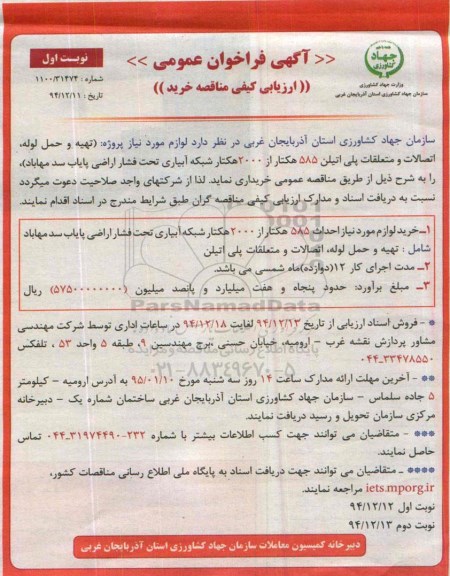 نوبت اول
شماره : ۱۱۰۰/۳۱۴۷۴
تاریخ : ۹۴/۱۲/۱۱
<< آگهی فراخوان عمومی >>
(( ارزیابی کیفی مناقصه خرید ))
جهاد کشاورزی
وزارت جهاد کشاورزی
سازمان جهاد کشاورزی استان آذربایجان غربی
سازمان جهاد کشاورزی استان آذربایجان غربی در نظر دارد لوازم مورد نیاز پروژه: (تهیه و حمل لوله،
اتصالات و متعلقات پلی اتیلن ۵۸۵ هکتار از ۲۰۰۰هکتار شبکه آبیاری تحت فشار اراضی پایاب سد مهاباد)،
را به شرح ذیل از طریق مناقصه عمومی خریداری نماید. لذا از شرکتهای واجد صلاحیت دعوت میگردد
نسبت به دریافت اسناد و مدارک ارزیابی کیفی مناقصه گران طبق شرایط مندرج در اسناد اقدام نمایند.
۱ــ خرید لوازم مورد نیاز احداث ۵۸۵ هکتار از ۲۰۰۰ هکتار شبکه آبیاری تحت فشار اراضی پایاب سد مهاباد
شامل : تهیه و حمل لوله، اتصالات و متعلقات پلی اتیلن
۲ــ مدت اجرای کار ۱۲(دوازده)ماه شمسی می باشد.
۳ــ مبلغ برآورد: حدود پنجاه و هفت میلیارد و پانصد میلیون (۵۷۵۰۰۰۰۰۰۰۰) ریال
ParsNamadData
* - فروش اسناد ارزیابی از تاریخ ۹۴/۱۲/۱۳ لغایت ۹۴/۱۲/۱۸ در ساعات اداری توسط شرکت مهندسی
مشاور پردازش نقشه غرب - ارومیه، خیابان حسنی برج مهندسین ۹، طبقه ۵ واحد ۵۳ ، تلفکس
۰۴۴-۳۳۴۷۸۵۵۰
پایگاه اطلاع رسانی مناقصه و مزایده
۰۲۱-۸۸۳۴۹۶۷۰-۵
** - آخرین مهلت ارائه مدارک ساعت ۱۴ روز سه شنبه مورخ ۹۵/۰۱/۱۰ به آدرس ارومیه - کیلومتر
۵ جاده سلماس - سازمان جهاد کشاورزی استان آذربایجان غربی ساختمان شماره یک - دبیرخانه
مرکزی سازمان تحویل و رسید دریافت نمایند.
*** - متقاضیان می توانند جهت کسب اطلاعات بیشتر با شماره ۲۳۲-۳۱۹۷۴۴۹۰-۰۴۴ تماس
حاصل نمایند.
**** ــ متقاضیان می توانند جهت دریافت اسناد به پایگاه ملی اطلاع رسانی مناقصات کشور،
iets.mporg.ir مراجعه نمایند.
نوبت اول ۹۴/۱۲/۱۲
نوبت دوم ۹۴/۱۲/۱۳
دبیرخانه کمیسیون معاملات سازمان جهاد کشاورزی استان آذربایجان غربی